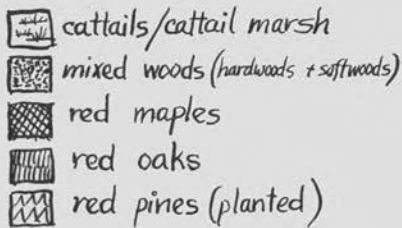 cattails/cattail marsh
mixed woods (hardwoods + softwoods)
red maples
red oaks
red pines (planted)